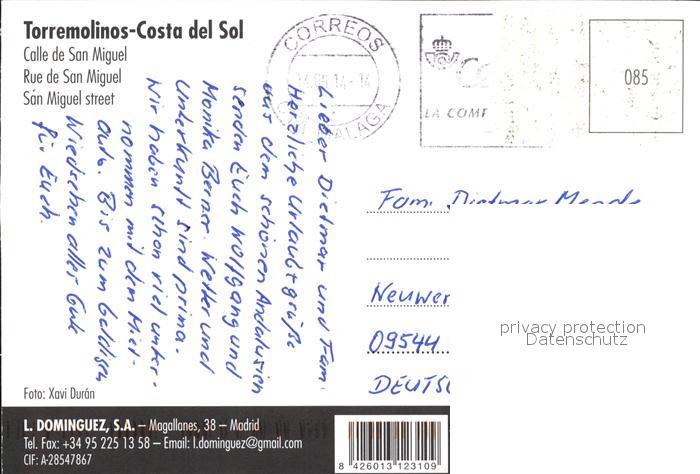 Torremolinos-Costa del Sol
Calle de San Miguel
Rue de San Miguel
San Miguel street
CORREOS
MALAGA
LA COMF
085
Lieber Dietmar und Fam.
Herzliche Urlaubsgrüße
aus dem schönen Andalusien
senden Euch Wolfgang und
Monika Berner. Wetter und
Unterkunft sind prima.
Wir haben schon viel unter-
nommen mit dem Miet-
auto. Bis zum
Wiedsehen alles Gute
für Euch.
Fam. Dietmar Mende
Neuwer
09544
DEUTSC
privacy protection
Datenschutz
Foto: Xavi Durán
L. DOMINGUEZ, S.A. – Magallanes, 38 – Madrid
Tel. Fax: +34 95 225 13 58 – Email: l.dominguez@gmail.com
CIF: A-28547867
8 426013 123109